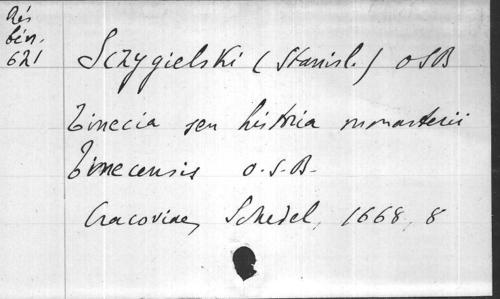 Rés
bén.
621
Sczygielski (Stanisl.) OSB
Tinecia seu historia monasterii
Tinecensis O.S.B.
Cracoviae, Schedel, 1668, 8